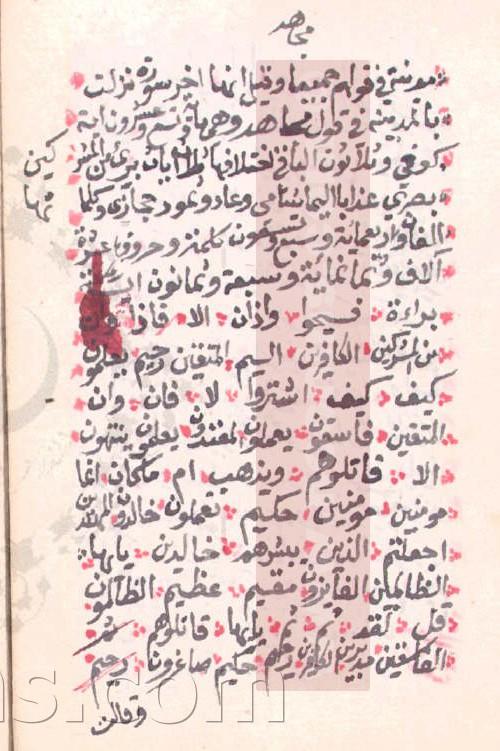 مجاهد
مدنية في قولهم جميعا وقيل انها اخر سورة نزلت
بالمدينة في قول مجاهد وهي مأية وتسع وعشرون اية
كوفي وثلاثون الباقي اختلافها ثلاث ايات بريء من المشر
كين
بصري عذابا اليما شامي وعاد وثمود حجازي وكلما
تها
الفان واربعمائة وسبع وتسعون كلمة وحروفها عشرة
الاف وثمانمائة وسبعة وثمانون
براءة فسيحوا واذان الا فاذا وان
من المشركين الكافرين اليم المتقين رحيم يعلمون
كيف كيف اشتروا لا فان وان
المتقين فاسقون يعملون المعتدون يعلمون ينتهون
الا قاتلوهم ويذهب ام ماكان انما
مومنين مومنين حكيم تعملون خالدون المهتدين
اجعلتم الذين يبشرهم خالدين يايها
الظالمين الفايزون مقيم عظيم الظالمون
قل لقد ثم ثم يايها قاتلوهم
الفاسقين مدبرين الكافرين رحيم حكيم صاغرون رحيم
وقالت
ns.com